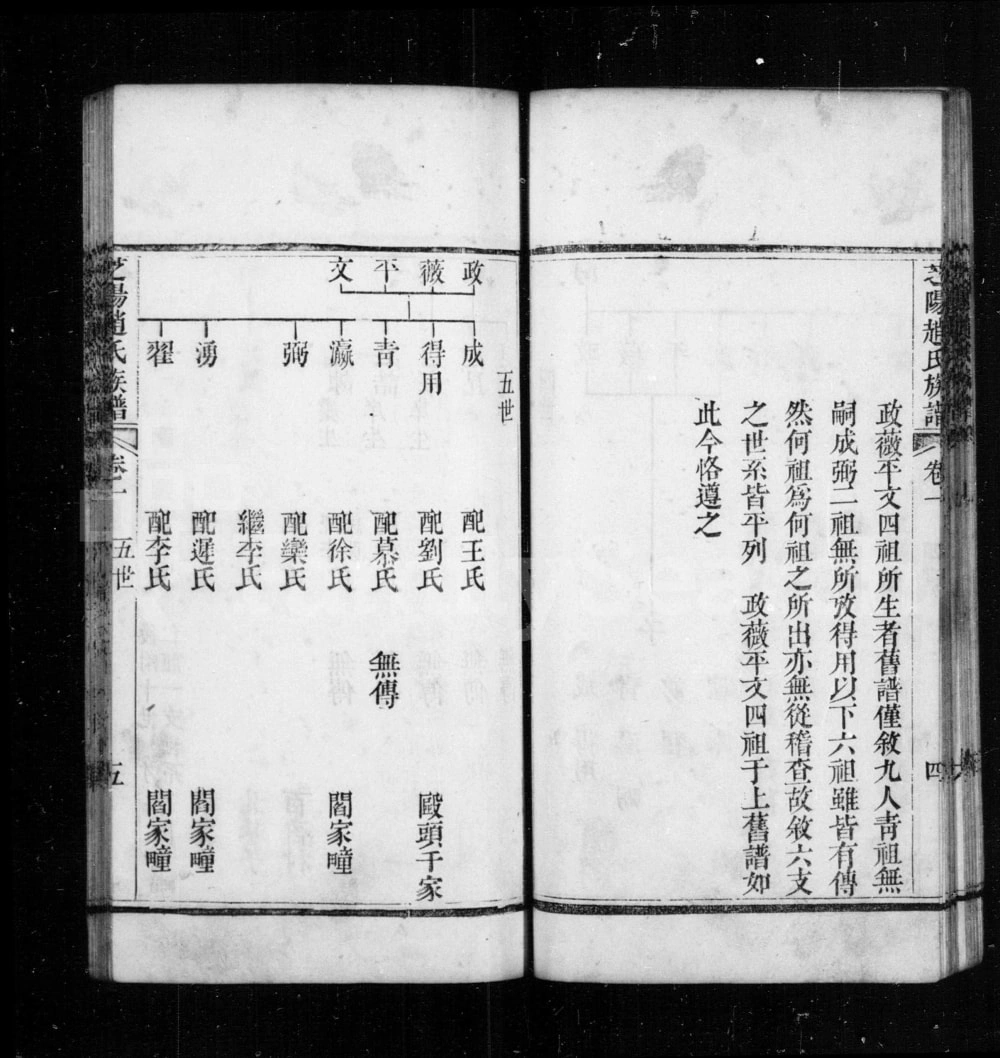 芝陽趙氏族譜 卷一 四
政薇平文四祖所生者舊譜僅敘九人青祖無
嗣成弼二祖無所攷得用以下六祖雖皆有傳
然何祖爲何祖之所出亦無從稽查故敘六支
之世系皆平列 政薇平文四祖于上舊譜如
此今恪遵之
五世
政 成 配王氏
薇 得用 配劉氏 毆頭于家
平 青 配慕氏 無傳
文 瀛 配徐氏 閻家疃
弼 配欒氏
繼李氏
湧 配遲氏 閻家疃
翟 配李氏 閻家疃
芝陽趙氏族譜 卷一 五世 五